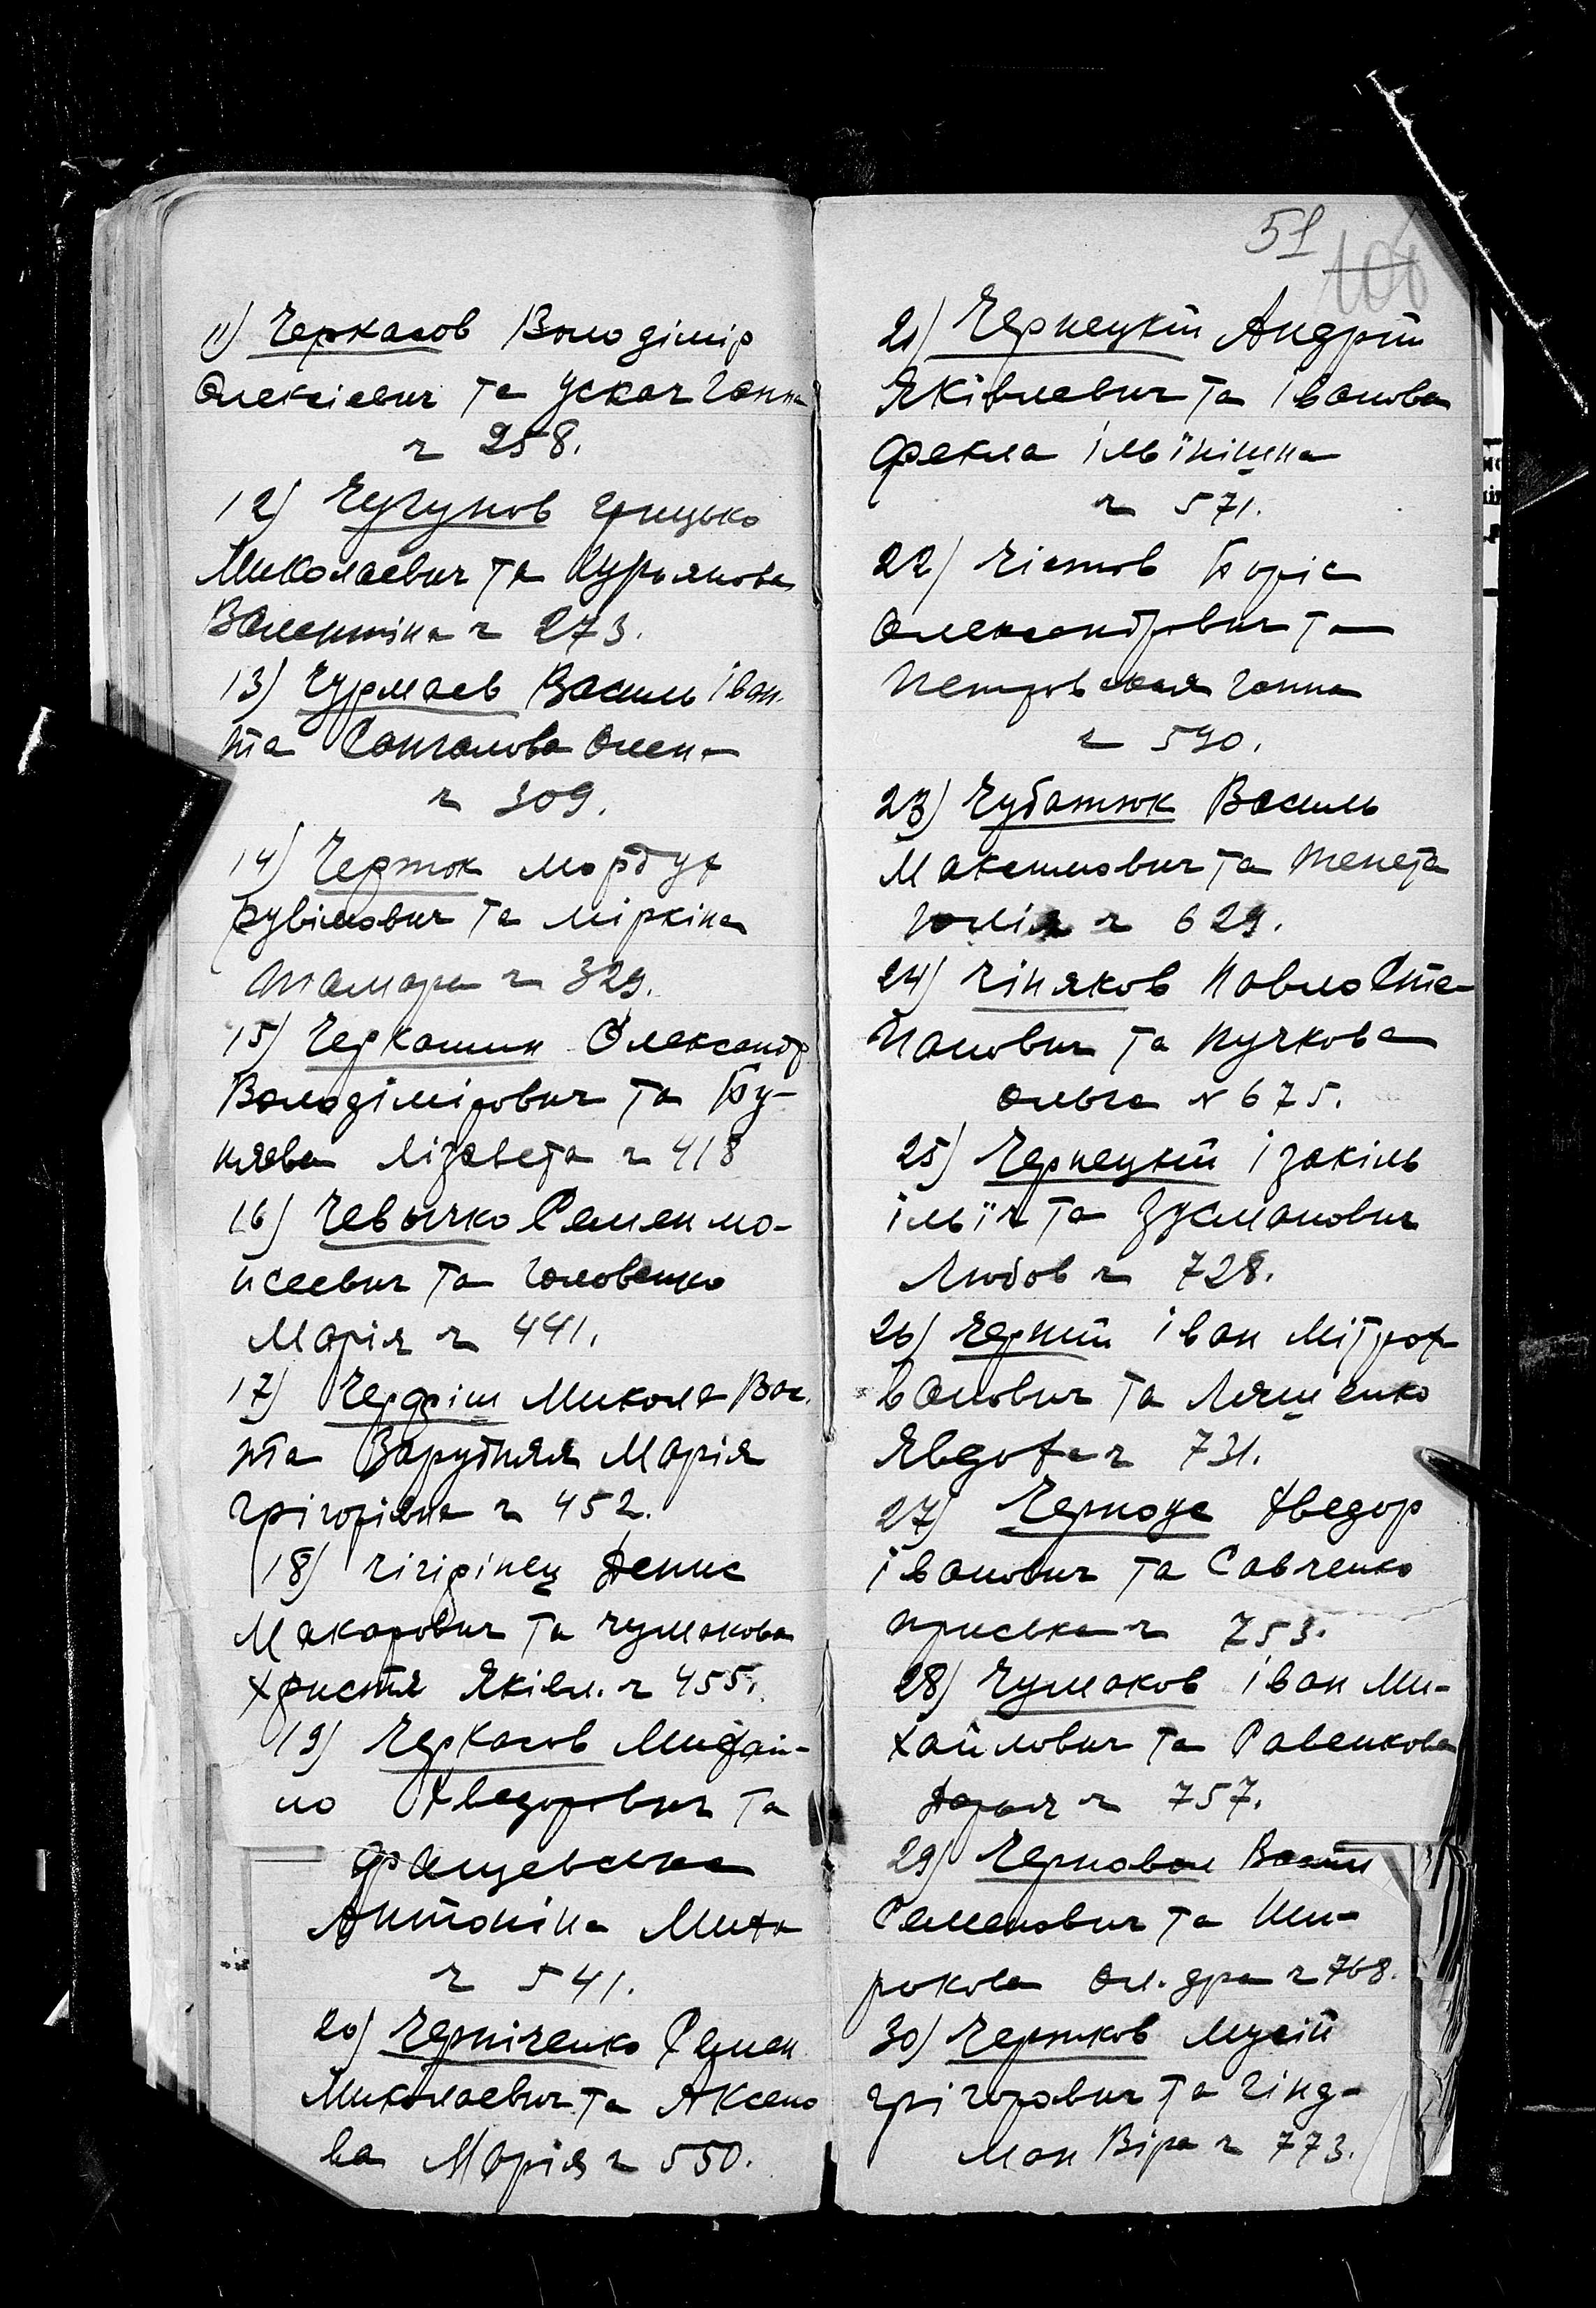 11) Черкасов Володімір
Олексіевич та Ускач Ганна
ч 258.
12) Чугунов Грицько
Миколаевич та Курьянова
Валентіна ч 273.
13) Чурмаев Василь Іван.
та Сангалова Олена
ч 309.
14) Черток Мордух
Рувімович та Міркіна
Тамара ч 329.
15) Черкашин Олександр
Володіміровович та Бу-
няева Лізавета ч 418
16) Чевычко Семен Мо-
исеевич та Головенко
Марія ч 441.
17) Микола Вас.
та Зарудняя Марія
Грігорівна ч 452.
18) Чігірінец Денис
Макарович та Чумакова
Христя Яківл. ч 455.
19) Черкасов Михай-
ло Хведорович та
Антоніна Миха
ч 541.
20) Черніченко Семен
Миколаевич та Аксено
ва Марія ч 550.
51
21) Чернецкій Андрій
Яківлевич та Іванова
Фекла Ільїнішна
ч 571.
22) Чістов Боріс
Олександрович та
Петровская Ганна
ч 590.
23) Чубатюк Василь
Максимович та Тепета
Юлія ч 629.
24) Чіняков Павло Сте-
панович та Пучкова
Ольга № 675.
25) Чернецкій Ізакіль
Ільїч та Зусманович
Любов ч 728.
26) Черній Іван Мітрох
ванович та Лященко
Явдоха ч 731.
27) Хведор
Іванович та Савченко
Приська ч 753.
28) Чумаков Іван Ми-
хайлович та Равенкова
Дарья ч 757.
29) Черновол
Семенович та Ши-
рокова Ол.дра ч 768.
30) Чертков Мусій
Грігорович та Гінд-
ман Віра ч 773.